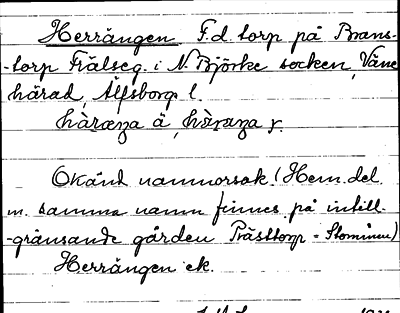 Herrängen F.d. torp på Brans-
-torp Frälseg. i N. Björke socken, Väne
härad, Älfsborg l.
hàræŋa ä, hàraŋa y.
Okänd namnorsak. (Hem. del
m. samma namn finnes på intill-
-gränsande gården Prästtorp - Stommen)
Herrängen ek.